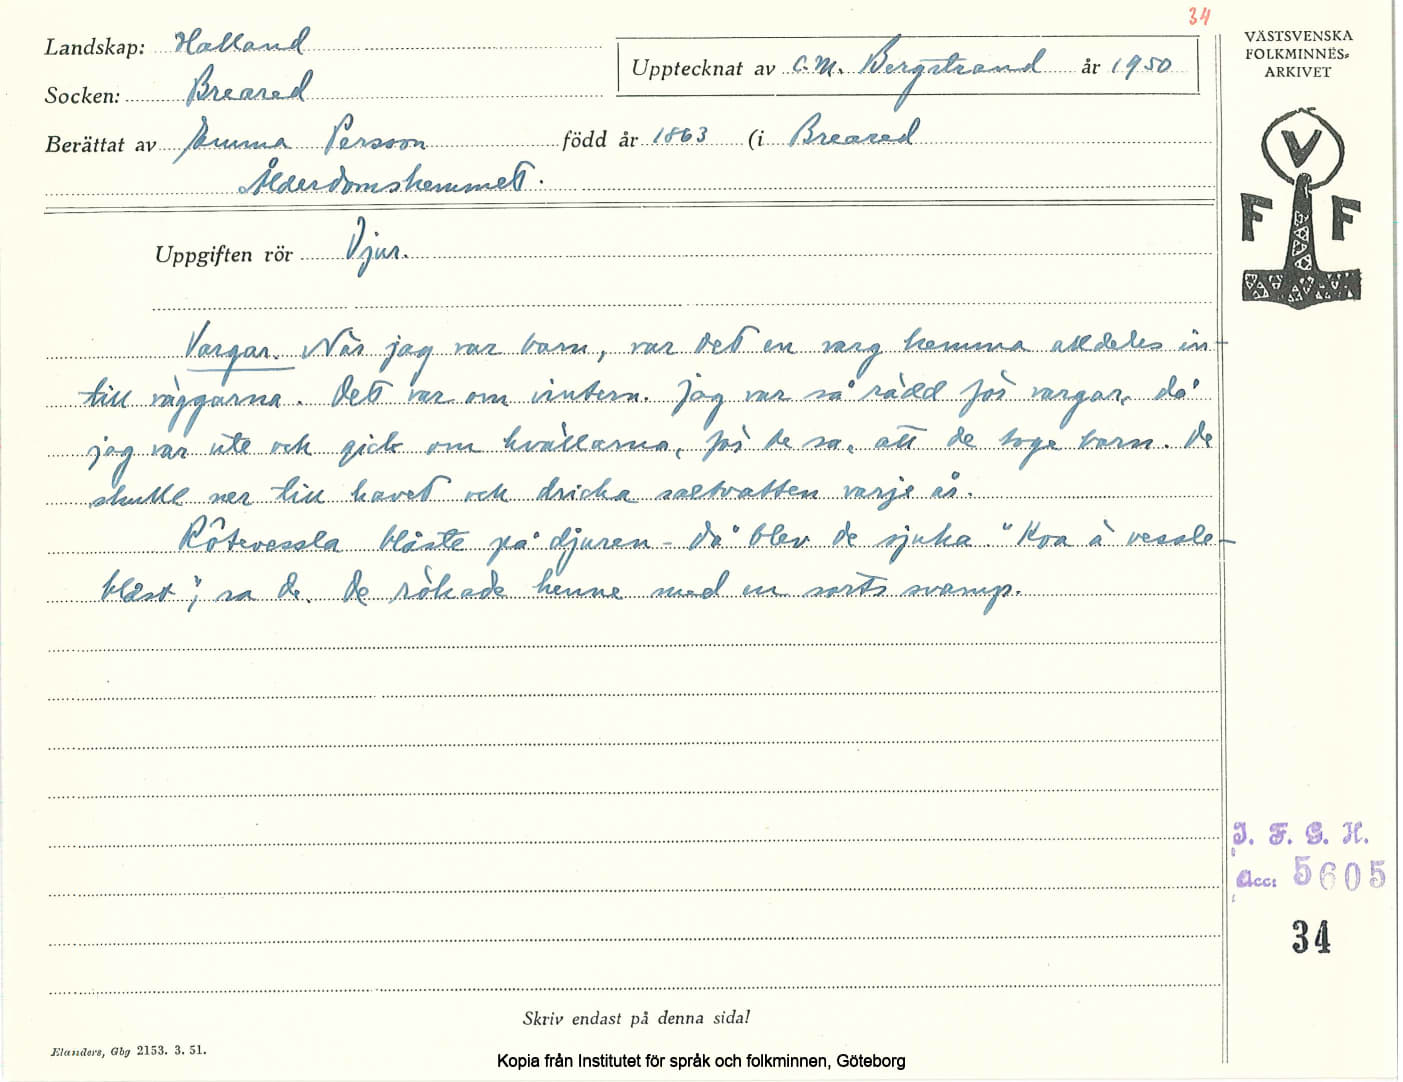 34
Landskap: Halland
Upptecknat av C.M. Bergstrand år 1950
Socken: Breared
Berättat av Emma Persson född år 1863 (i Breared
Ålderdomshemmet.
Uppgiften rör Djur.
Vargar. När jag var barn, var det en varg hemma alldeles in-
till väggarna. Det var om vintern. Jag var så rädd för vargar, då
jag var ute och gick om kvällarna, för de sa, att de toge barn. De
skulle ner till havet och dricka saltvatten varje år.
Rôtevessla blåste på djuren - då blev de sjuka "Koa ä vessle-
blåst", sa de. De rökade henne med en sorts svamp.
Skriv endast på denna sida!
Elanders, Gbg 2153. 3. 51.
Kopia från Institutet för språk och folkminnen, Göteborg
VÄSTSVENSKA
FOLKMINNES-
ARKIVET
V
F F
I. F. G. H.
Acc: 5605
34